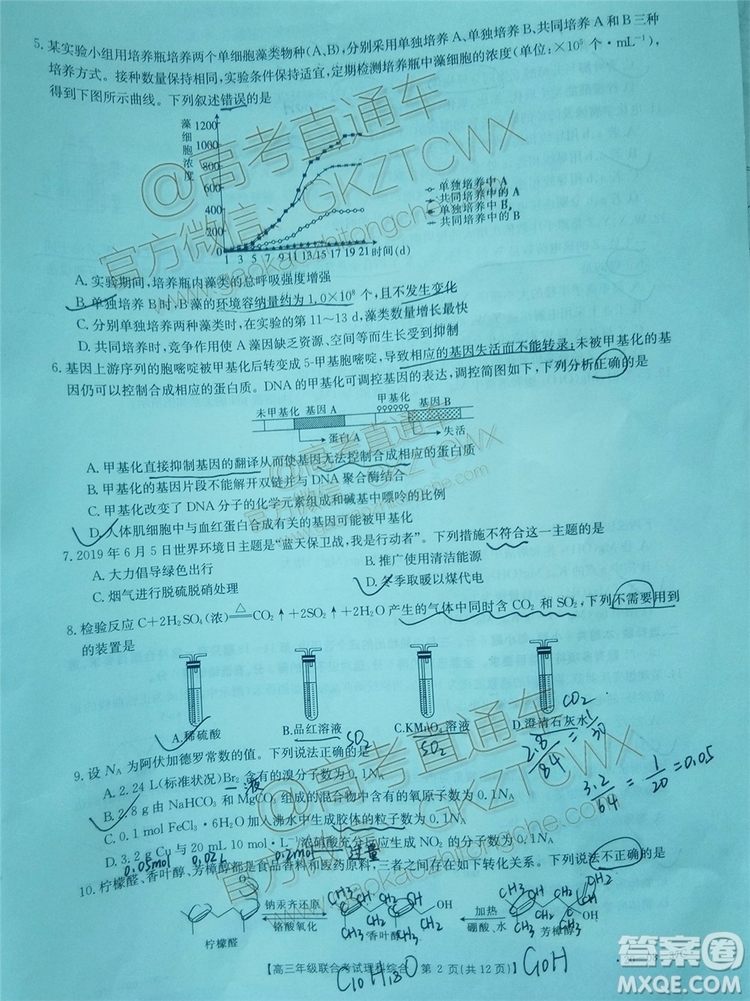 5. 某实验小组用培养瓶培养两个单细胞藻类物种(A、B),分别采用单独培养A、单独培养B、共同培养A和B三种
培养方式。接种数量保持相同,实验条件保持适宜,定期检测培养瓶中藻细胞的浓度(单位:×10⁵ 个·mL⁻¹),
得到下图所示曲线。下列叙述错误的是
藻细胞浓度
1200
1000
800
600
400
200
0
1 3 5 7 9 11 13 15 17 19 21 时间(d)
单独培养中 A
共同培养中的 A
单独培养中 B
共同培养中的 B
A. 实验期间,培养瓶内藻类的总呼吸强度增强
B. 单独培养B时,B藻的环境容纳量约为1.0×10⁸ 个,且不发生变化
C. 分别单独培养两种藻类时,在实验的第11~13 d,藻类数量增长最快
D. 共同培养时,竞争作用使A藻因缺乏资源、空间等而生长受到抑制
6. 基因上游序列的胞嘧啶被甲基化后转变成5-甲基胞嘧啶,导致相应的基因失活而不能转录;未被甲基化的基
因仍可以控制合成相应的蛋白质。DNA的甲基化可调控基因的表达,调控简图如下,下列分析正确的是
未甲基化 基因A 甲基化 基因B
蛋白A 失活
A. 甲基化直接抑制基因的翻译从而使基因无法控制合成相应的蛋白质
B. 甲基化的基因片段不能解开双链与DNA聚合酶结合
C. 甲基化改变了DNA分子的化学元素组成和碱基中嘌呤的比例
D. 人体肌细胞中与血红蛋白合成有关的基因可能被甲基化
7. 2019年6月5日世界环境日主题是“蓝天保卫战,我是行动者”。下列措施不符合这一主题的是
A. 大力倡导绿色出行 B. 推广使用清洁能源
C. 烟气进行脱硫脱硝处理 D. 冬季取暖以煤代电
8. 检验反应C+2H₂SO₄(浓)≜CO₂↑+2SO₂↑+2H₂O产生的气体中同时含CO₂和SO₂,下列不需要用到
的装置是
CO₂
A.稀硫酸 B.品红溶液 C.KMnO₄溶液 D.澄清石灰水
SO₂ SO₂ 2.8/84=1/30
9. 设 Nₐ 为阿伏加德罗常数的值。下列说法正确的是
A. 2.24 L(标准状况)Br₂ 含有的溴分子数为0.1Nₐ
液
B. 2.8 g由NaHCO₃和MgCO₃组成的混合物中含有的氧原子数为0.1Nₐ
3.2/64=1/20=0.05
C. 0.1 mol FeCl₃·6H₂O加入沸水中生成胶体的粒子数为0.1Nₐ
D. 3.2 g Cu与20 mL 10 mol·L⁻¹浓硝酸充分反应生成NO₂的分子数为0.1Nₐ
0.05mol 0.02L 0.2mol 过量
10. 柠檬醛、香叶醇、芳樟醇都是食品香料和医药原料,三者之间存在如下转化关系。下列说法不正确的是
钠汞齐还原 加热
铬酸氧化 硼酸、水
柠檬醛 香叶醇 芳樟醇
CH₃ CH₃ OH CH₂ CH₃ CH₃ OH CH₂
【高三年级联合考试理科综合 第2页(共12页)】
C₁₀H₁₈O
答案圈
MXQE.COM
@高考直通车
官方微信:GKZTCWX
www.gaokaozhitongche.com